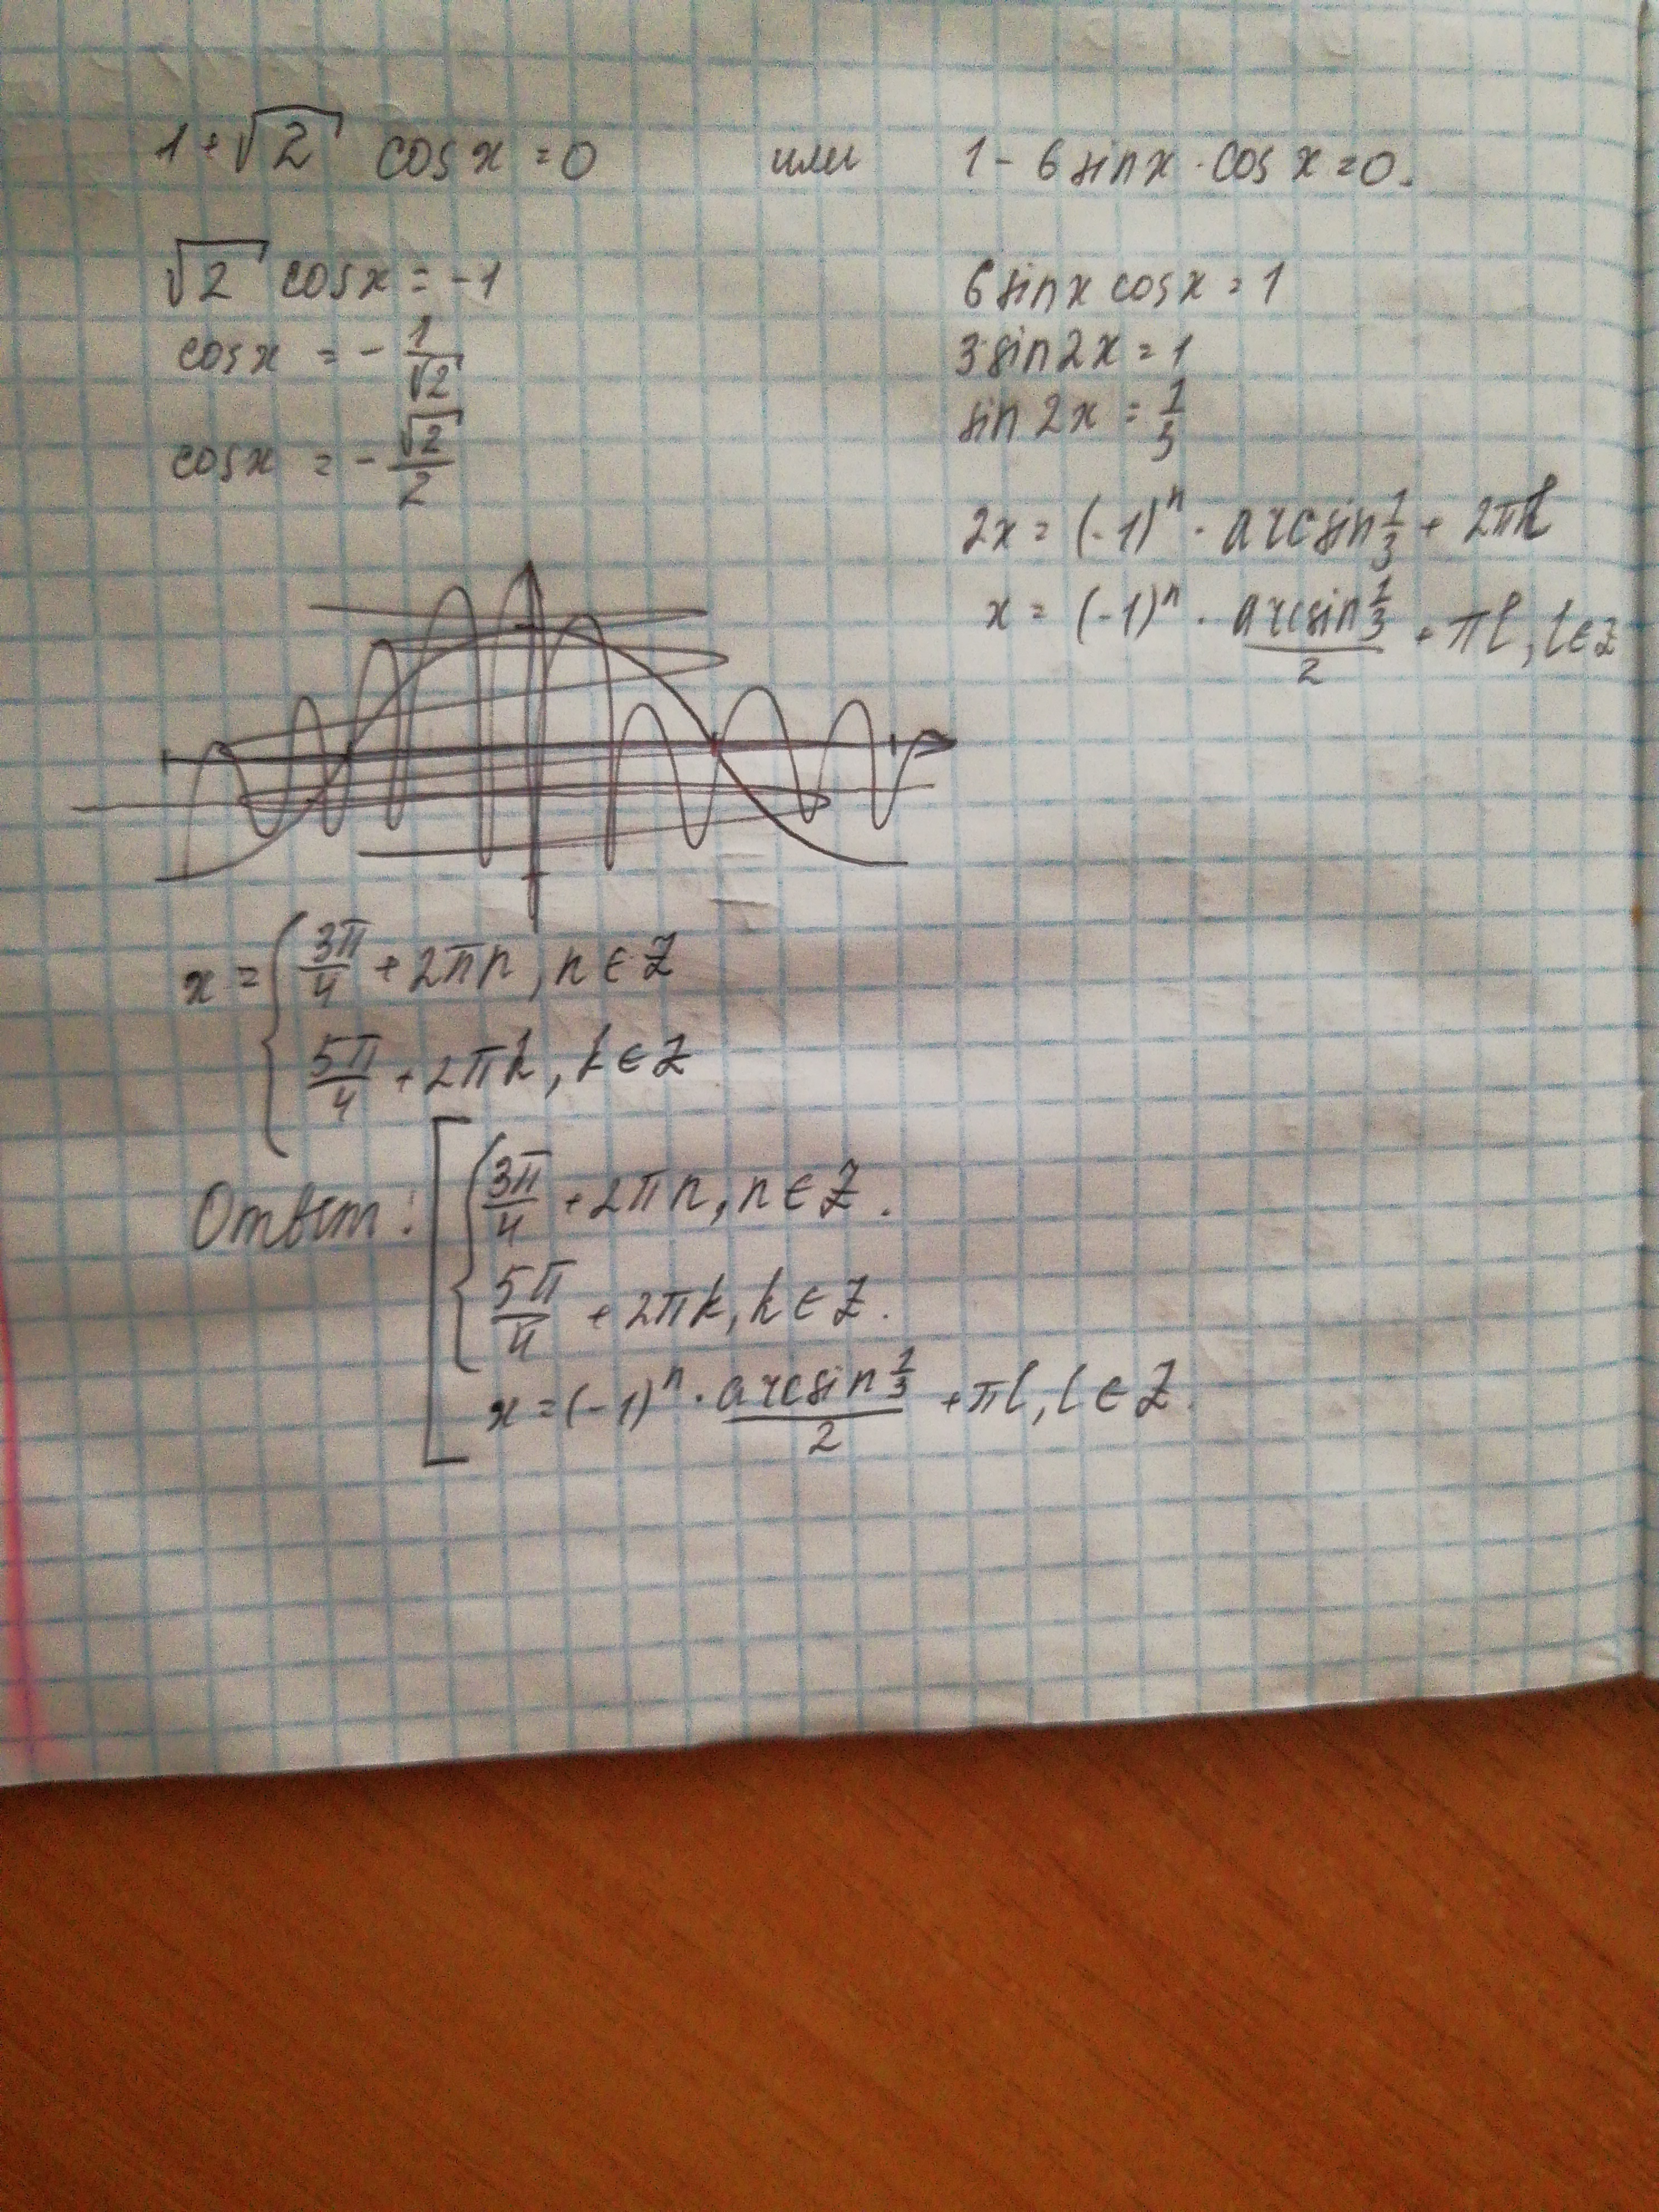 1+√2 cos x = 0 или 1 - 6 sin x · cos x = 0.
√2 cos x = -1
cos x = - 1/√2
cos x = - √2/2
6 sin x cos x = 1
3 sin 2x = 1
sin 2x = 1/3
2x = (-1)ⁿ · arcsin 1/3 + 2πl
x = (-1)ⁿ · (arcsin 1/3)/2 + πl, l ∈ Z
x = { 3π/4 + 2πn, n ∈ Z
5π/4 + 2πk, k ∈ Z
Ответ: [ { 3π/4 + 2πn, n ∈ Z.
5π/4 + 2πk, k ∈ Z.
x = (-1)ⁿ · (arcsin 1/3)/2 + πl, l ∈ Z.